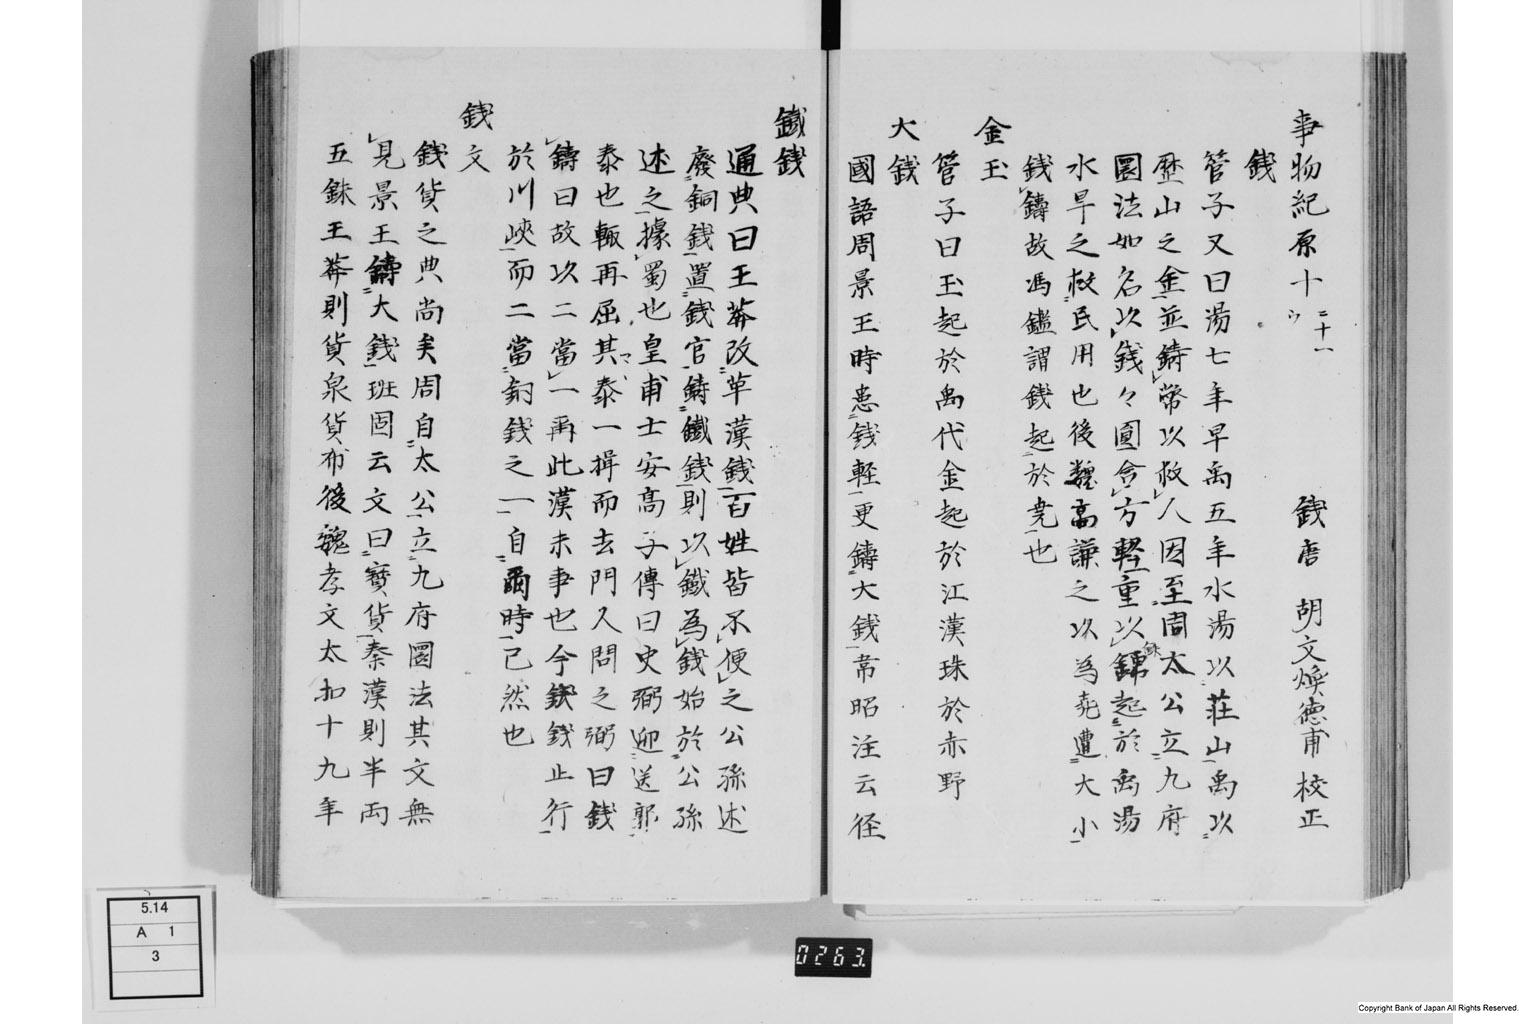 事物紀原十 二十一ウ 錢唐 胡文煥德甫校正
錢
管子又曰湯七年旱禹五年水湯以莊山禹以
歷山之金並鑄幣以救人因至周太公立九府
圜法如名以錢々圓含方輕重以銖起於禹湯
水旱之救民用也後魏高謙之以為堯遭大小
錢鑄故馮鑑謂錢起於堯也
金玉
管子曰玉起於禹代金起於江漢珠於赤野
大錢
國語周景王時患錢輕更鑄大錢韋昭注云徑
鐵錢
通典曰王莽改革漢錢百姓皆不便之公孫述
廢銅錢置錢官鑄鐵錢則以鐵為錢始於公孫
述之據蜀也皇甫士安高子傳曰史弼迎送郭
泰也輙再屈其泰一揖而去門人問之弼曰錢
鑄曰故以二當一再此漢末事也今鉄錢止行
於川峽而二當銅錢之一自爾時已然也
錢文
錢貨之典尚矣周自太公立九府圜法其文無
見景王鑄大錢班固云文曰寳貨秦漢則半両
五銖王莽則貨泉貨布後魏孝文太和十九年
5.14
A 1
3
0263.
Copyright Bank of Japan All Rights Reserved.